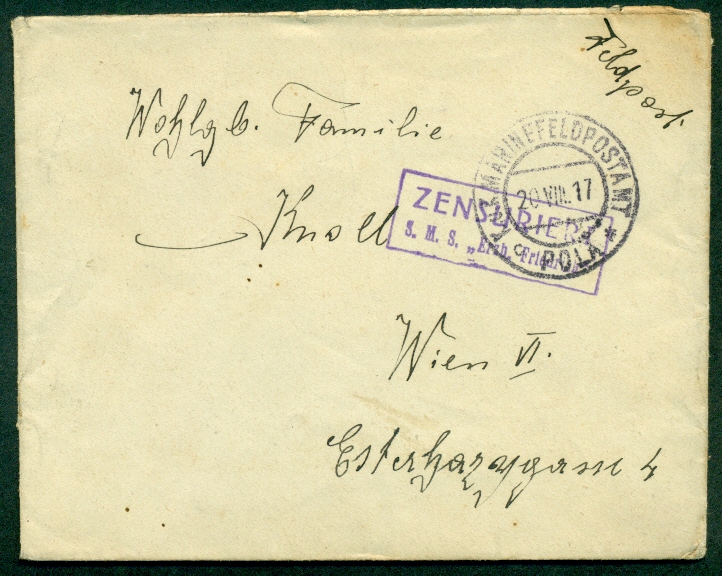 Feldpost.
Wohlgb. Familie
Knoll
K.u.K. MARINEFELDPOSTAMT
20.VIII.17
* c POLA *
ZENSURIERT
S. M. S. „Erzh. Friedrich"
Wien VI.
Esterhazygasse 4